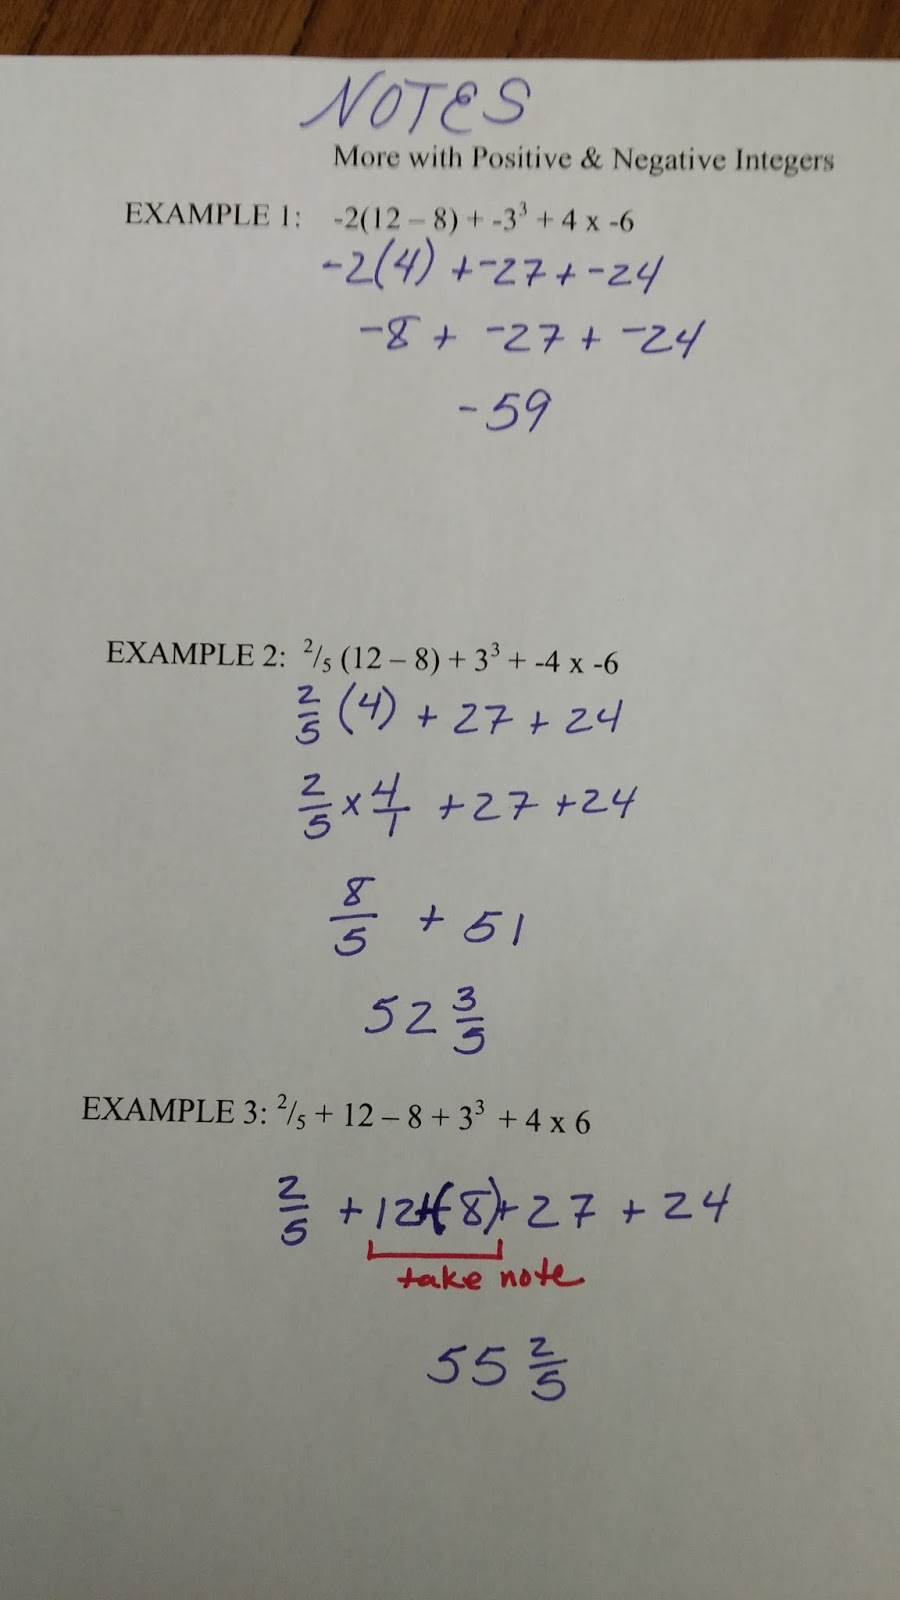 NOTES
More with Positive & Negative Integers
EXAMPLE 1: -2(12 – 8) + -3³ + 4 x -6
-2(4) + -27 + -24
-8 + -27 + -24
-59
EXAMPLE 2: ²/₅ (12 – 8) + 3³ + -4 x -6
2/5 (4) + 27 + 24
2/5 x 4/1 + 27 + 24
8/5 + 51
52 3/5
EXAMPLE 3: ²/₅ + 12 – 8 + 3³ + 4 x 6
2/5 + 12+(-8)+27 + 24
take note
55 2/5